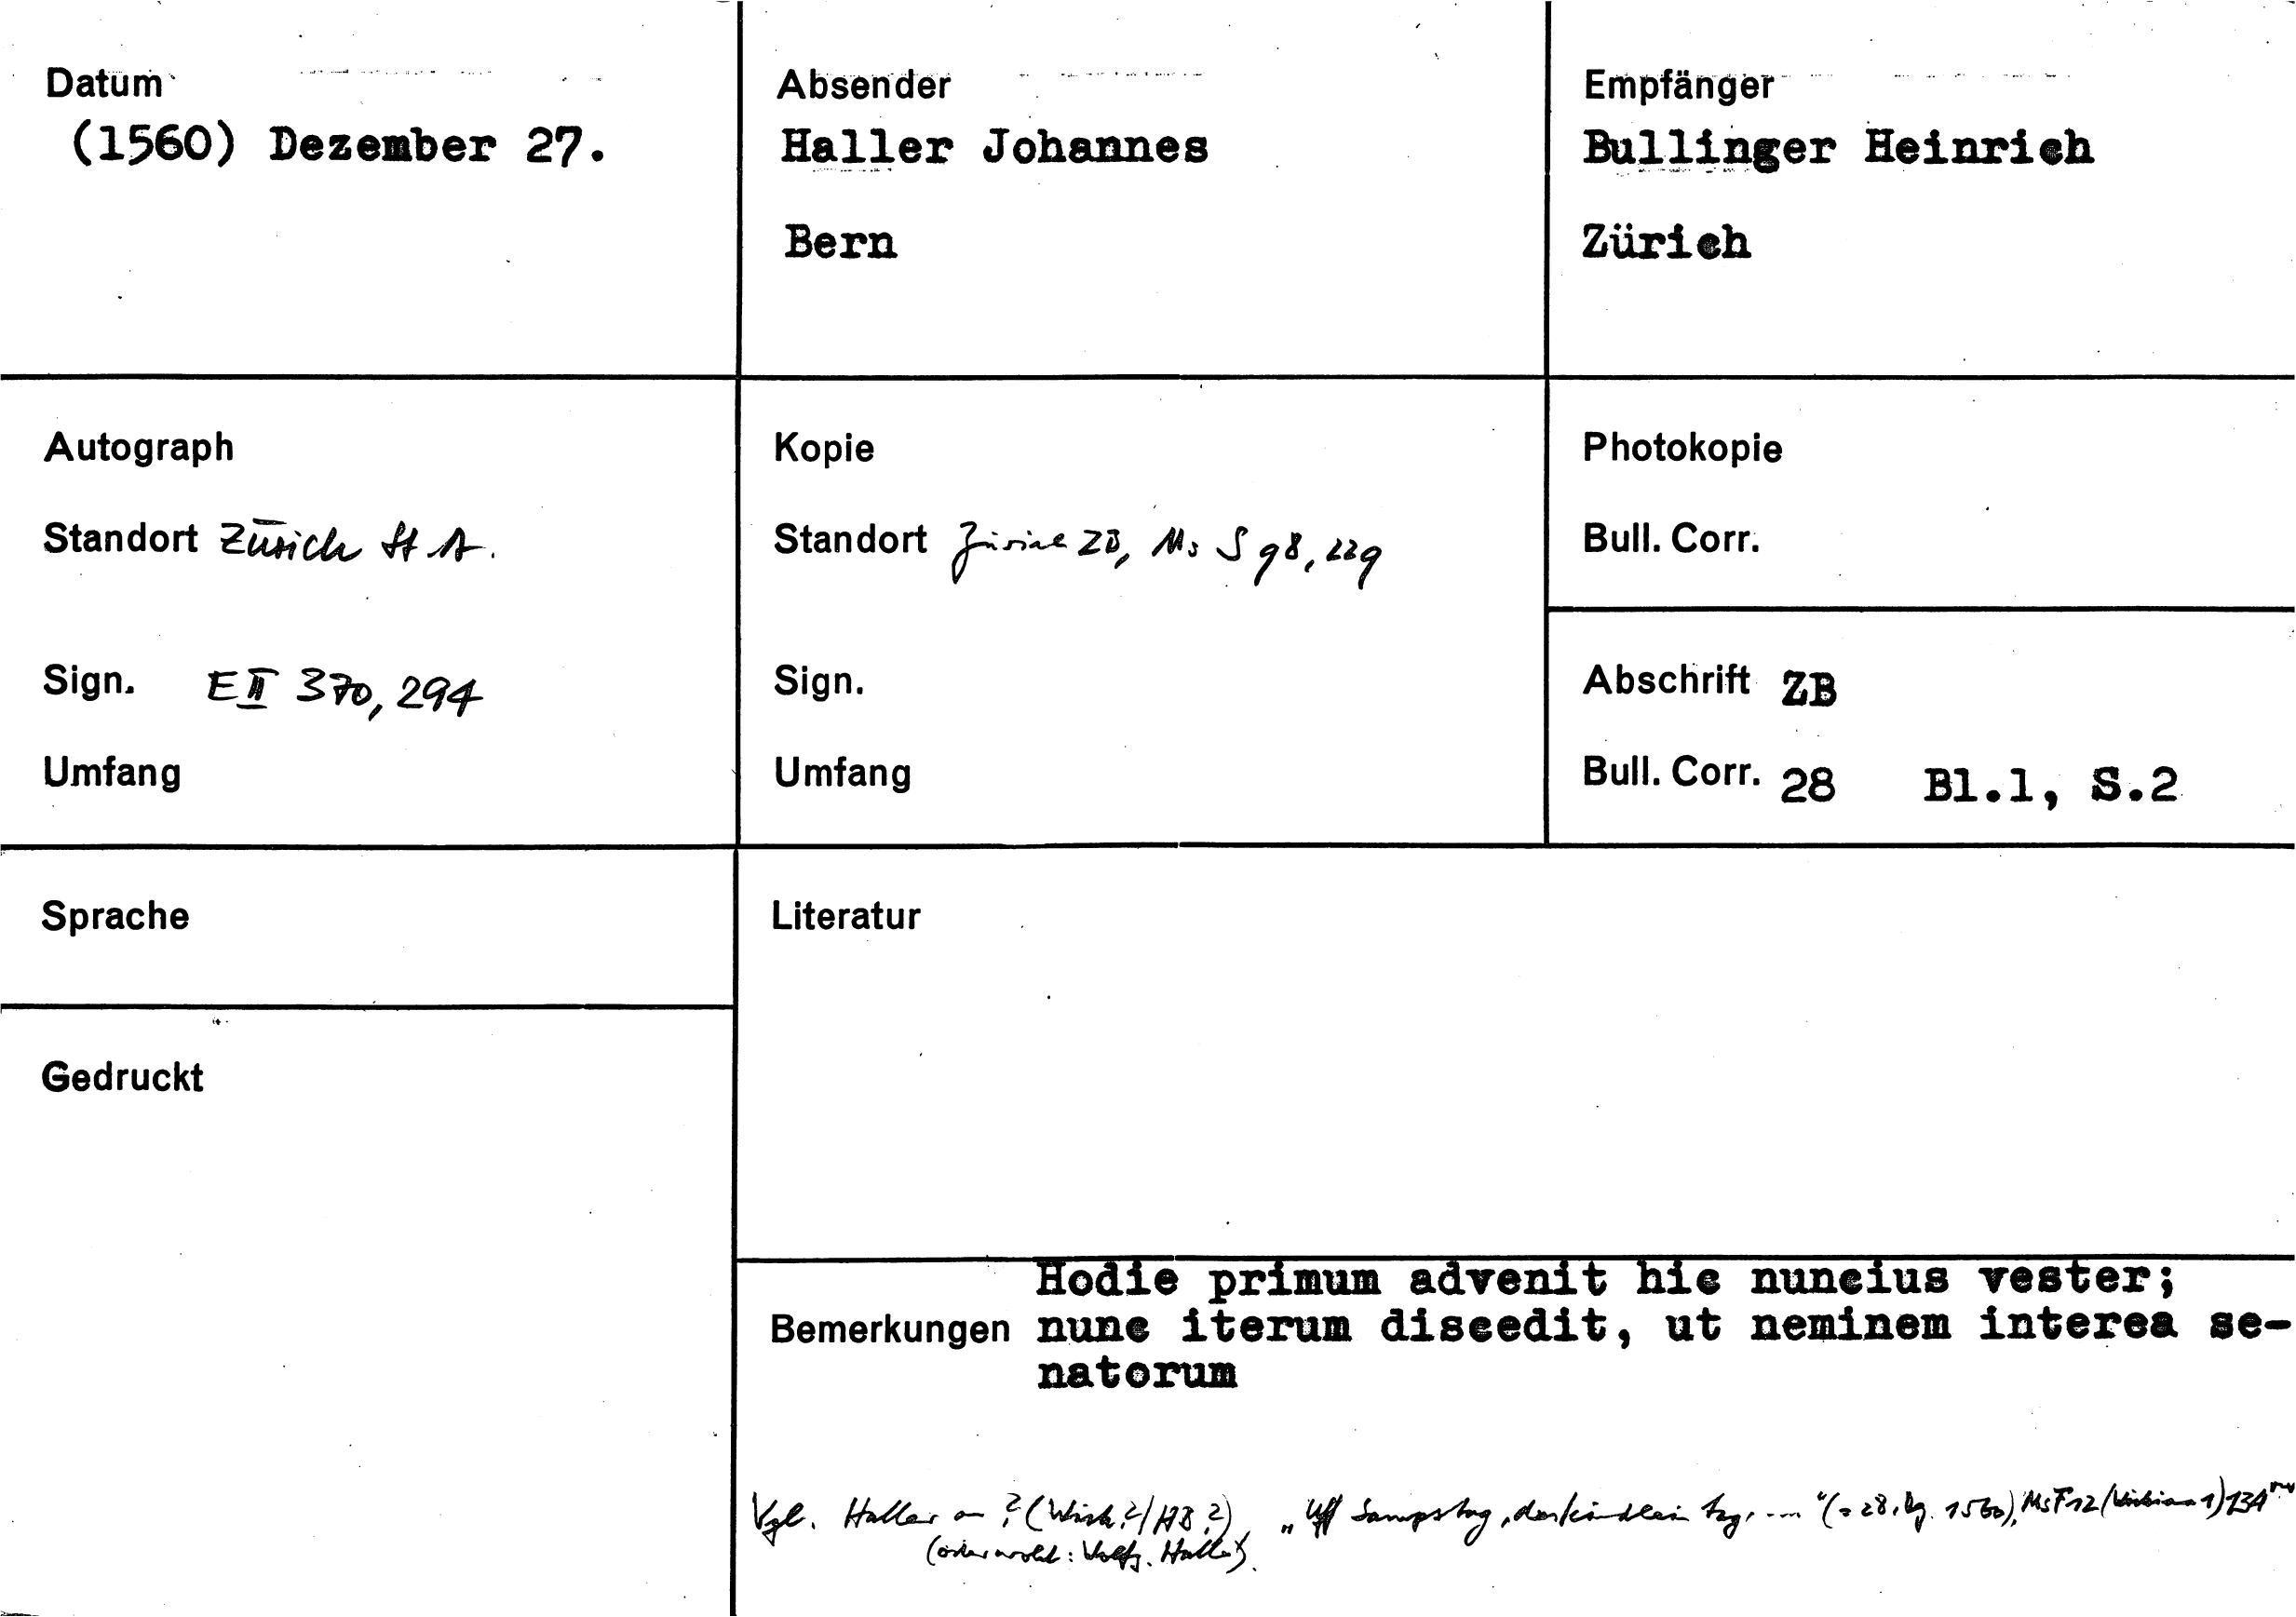 Datum
(1560) Dezember 27.
Absender
Haller Johannes
Bern
Empfänger
Bullinger Heinrich
Zürich
Autograph
Standort Zürich StA.
Sign. E II 370, 294
Umfang
Kopie
Standort Zürich ZB, Ms S 98, 229
Sign.
Umfang
Photokopie
Bull. Corr.
Abschrift ZB
Bull. Corr. 28 Bl.1, S.2
Sprache
Gedruckt
Literatur
Bemerkungen
Hodie primum advenit hic nuncius vester;
nunc iterum discedit, ut neminem interea se-
natorum
Vgl. Haller an ? (Wick?/HB?), "Uff Sampstag, der kindlein tag, ..." (= 28. 1560), Ms F 12 (Wickiana 1) 134
(oder wohl: Wolfg. Haller).